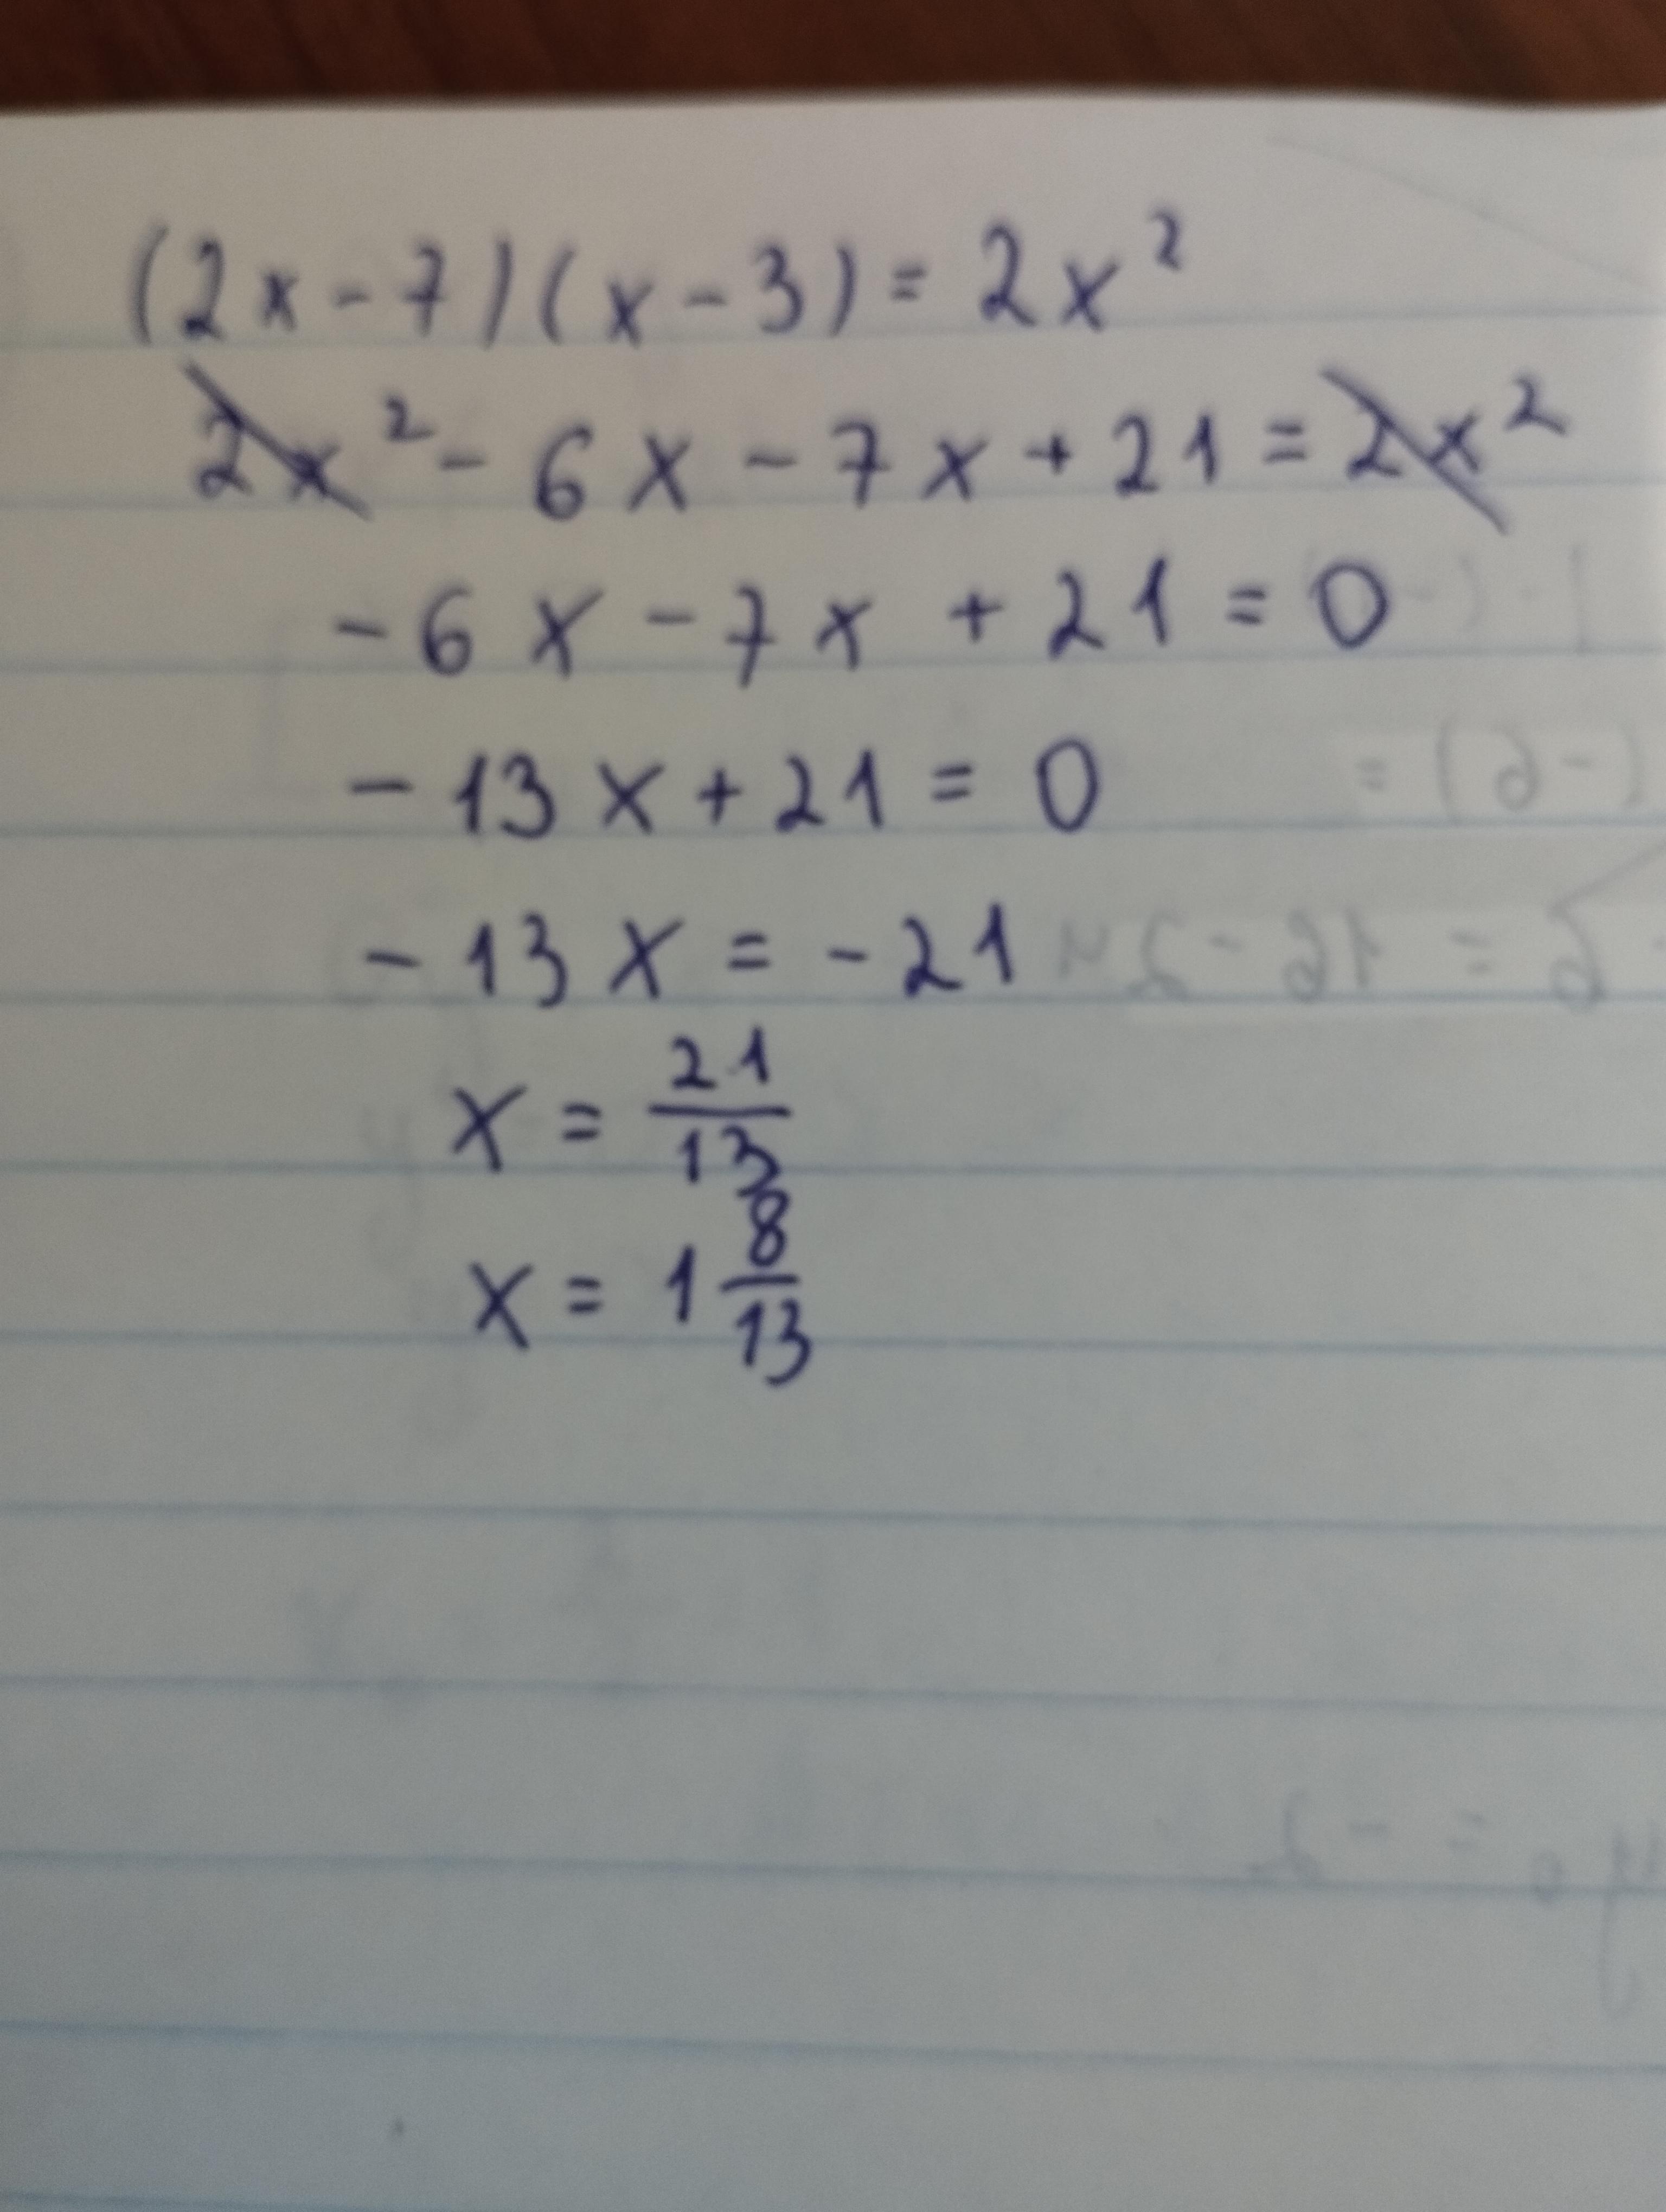 (2x-7)(x-3)=2x²
2x²-6x-7x+21=2x²
-6x-7x+21=0
-13x+21=0
-13x=-21
x=21/13
x=1 8/13